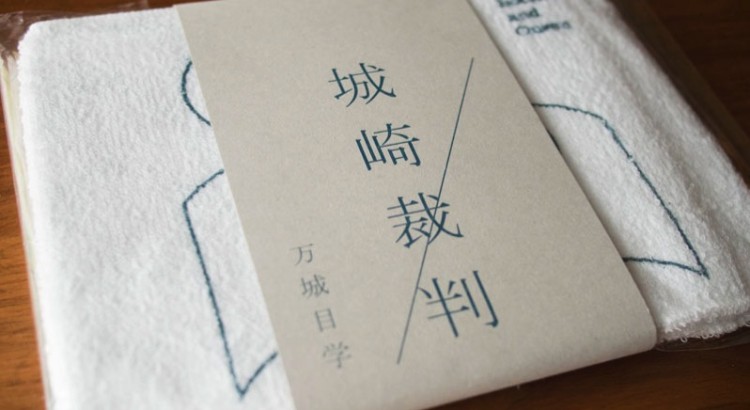 城崎裁判
万城目学
and
Onsen